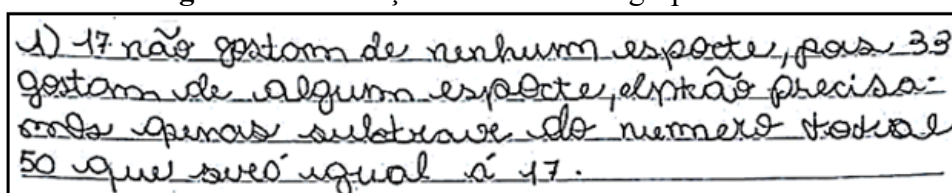 1) 17 não gostam de nenhum esporte, pois 33
gostam de algum esporte, então precisa-
mos apenas subtrair do numero total
50 que será igual á 17.